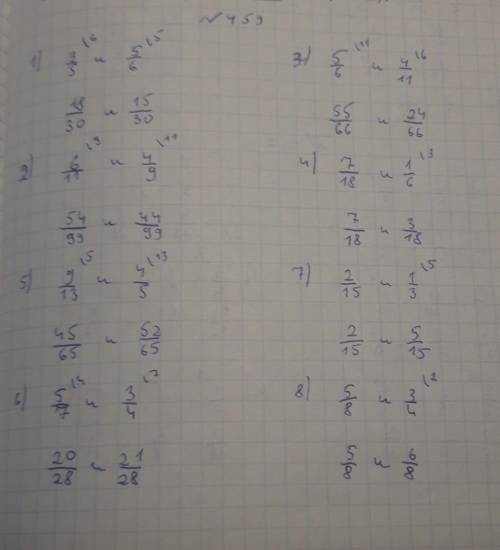 № 459
1) /5 \6 и 5/6 \5
18/30 и 15/30
2) 6/11 \9 и 4/9 \11
54/99 и 44/99
5) 9/13 \5 и 4/5 \13
45/65 и 52/65
6) 5/7 \4 и 3/4 \7
20/28 и 21/28
3) 5/6 \11 и 4/11 \6
55/66 и 24/66
4) 7/18 и 1/6 \3
7/18 и 3/18
7) 2/15 и 1/3 \5
2/15 и 5/15
8) 5/8 и 3/4 \2
5/8 и 6/8